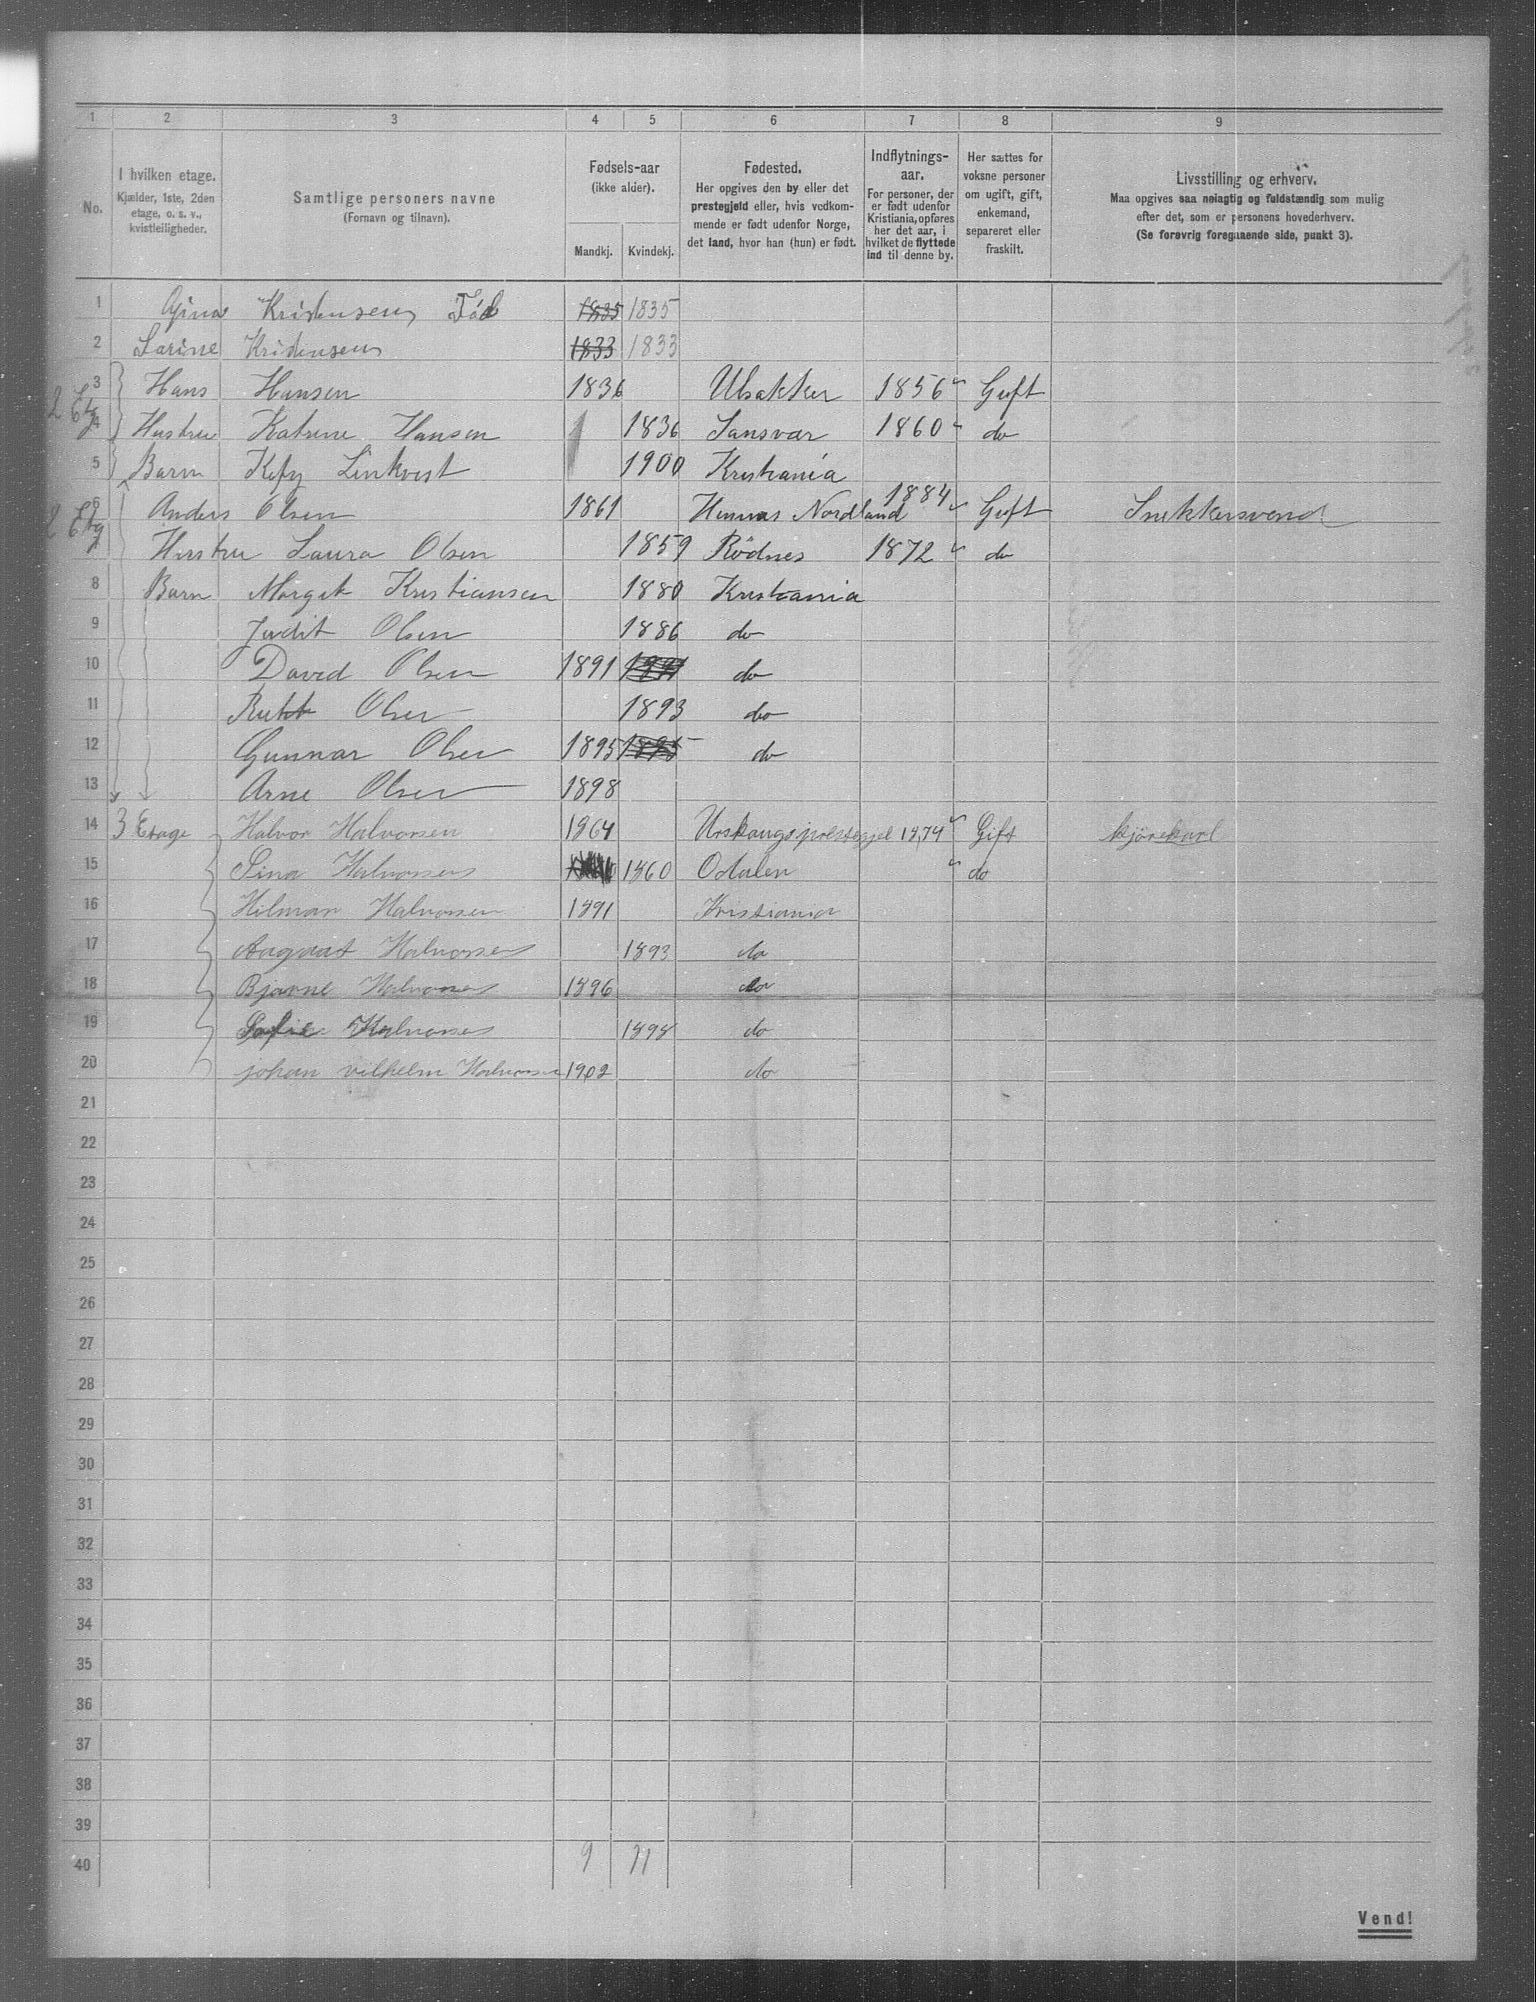 1 2 3 4 5 6 7 8 9
No.
I hvilken etage.
Kjælder, 1ste, 2den
etage, o. s. v.,
kvistleiligheder.
Samtlige personers navne
(Fornavn og tilnavn).
Fødsels-aar
(ikke alder).
Mandkj. Kvindekj.
Fødested.
Her opgives den by eller det
prestegjeld eller, hvis vedkom-
mende er født udenfor Norge,
det land, hvor han (hun) er født.
Indflytnings-
aar.
For personer, der
er født udenfor
Kristiania, opføres
her det aar, i
hvilket de flyttede
ind til denne by.
Her sættes for
voksne personer
om ugift, gift,
enkemand,
separeret eller
fraskilt.
Livsstilling og erhverv.
Maa opgives saa nøiagtig og fuldstændig som mulig
efter det, som er personens hovederhverv.
(Se forøvrig foregaaende side, punkt 3).
1 Gina Kristensen Föd 1835 1835
2 Larine Kristensen 1833 1833
2 Etg
3 Hans Hansen 1836 Ulsakker 1856 Gift
4 Hustru Katrine Hansen 1836 Sansvær 1860 do
5 Barn Linkvest 1900 Kristiania
2 Etg
6 Anders Olsen 1861 Nordland 1884 Gift Snekkersvend
7 Hustru Laura Olsen 1859 Rödnes 1872 do
8 Barn Margit Kristiansen 1880 Kristiania
9 Judit Olsen 1886 do
10 David Olsen 1891 1891 do
11 Rutt Olsen 1893 do
12 Gunnar Olsen 1895 1895 do
13 Arne Olsen 1898
14 3 Etage Halvor Halvorsen 1864 Urskaugs prestegjel 1874 Gift kjörekarl
15 Sina Halvorsen 1860 Odalen do
16 Hilmar Halvorsen 1891 Kristiania
17 Aagaat Halvorsen 1893 do
18 Bjarne Halvorsen 1896 do
19 Sofie Halvorsen 1898 do
20 johan vilhelm Halvorsen 1902 do
21
22
23
24
25
26
27
28
29
30
31
32
33
34
35
36
37
38
39
40 9 11
Vend!